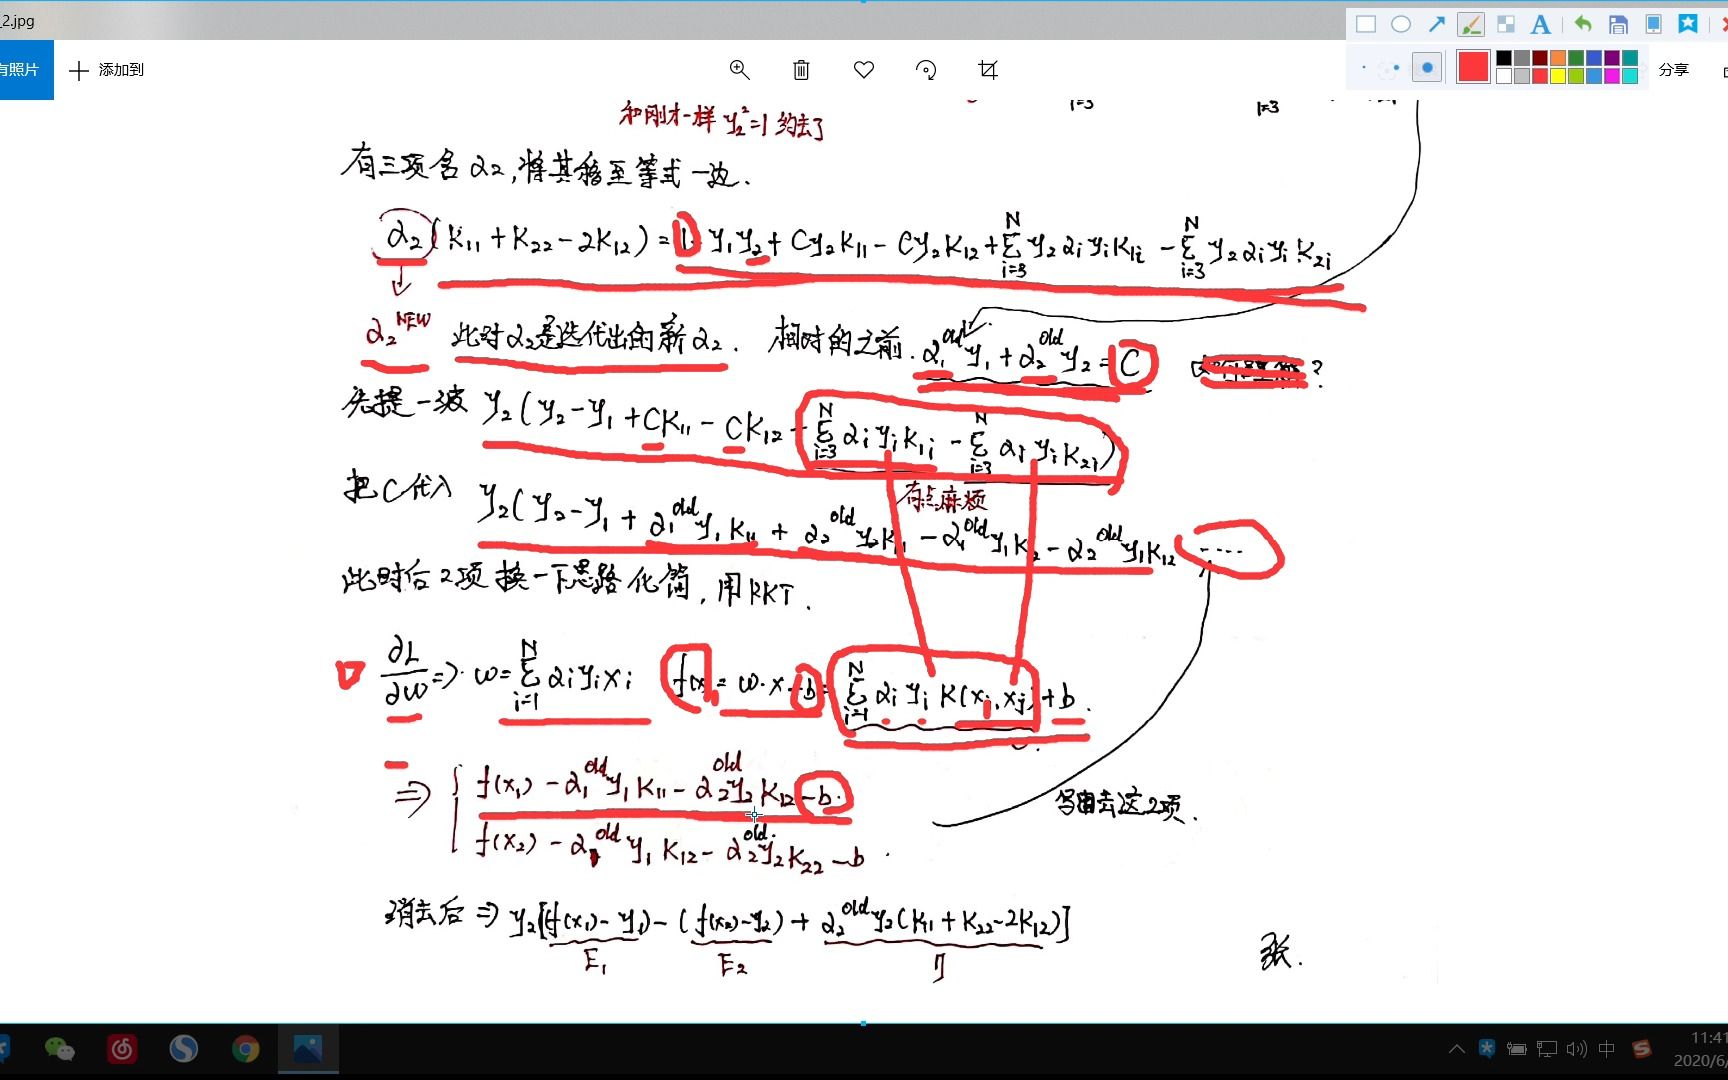 _2.jpg
有照片 添加到 分享
i=3 i=3
和刚才一样 y₂²=1 约去了
有三项含 α₂,将其移至等式一边.
α₂(K₁₁+K₂₂-2K₁₂)=1-y₁y₂+Cy₂K₁₁-Cy₂K₁₂+Σᵢ₌₃ᴺ y₂αᵢyᵢK₁ᵢ-Σᵢ₌₃ᴺ y₂αᵢyᵢK₂ᵢ
α₂ᴺᴱᵂ 此时α₂是迭代出的新α₂. 相对的之前. α₁ᵒˡᵈy₁+α₂ᵒˡᵈy₂=C ?
先提一波 y₂(y₂-y₁+CK₁₁-CK₁₂-Σᵢ₌₃ᴺ αᵢyᵢK₁ᵢ-Σᵢ₌₃ᴺ αᵢyᵢK₂ᵢ)
有点麻烦
把C代入 y₂(y₂-y₁+α₁ᵒˡᵈy₁K₁₁+α₂ᵒˡᵈy₂K₁₁-α₁ᵒˡᵈy₁K₁₂-α₂ᵒˡᵈy₁K₁₂ ----
此时后2项换一下思路化简,用KKT.
∂L/∂w ⇒ w=Σᵢ₌₁ᴺ αᵢyᵢxᵢ f(x)=w·x+b=Σᵢ₌₁ᴺ αᵢyᵢK(xᵢ,xⱼ)+b.
⇒ { f(x₁)-α₁ᵒˡᵈy₁K₁₁-α₂ᵒˡᵈy₂K₁₂-b.
f(x₂)-α₁ᵒˡᵈy₁K₁₂-α₂ᵒˡᵈy₂K₂₂-b.
去这2项.
消去后⇒ y₂[(f(x₁)-y₁)-(f(x₂)-y₂)+α₂ᵒˡᵈy₂(K₁₁+K₂₂-2K₁₂)]
E₁ E₂ η
张.
中 11:41
2020/6/